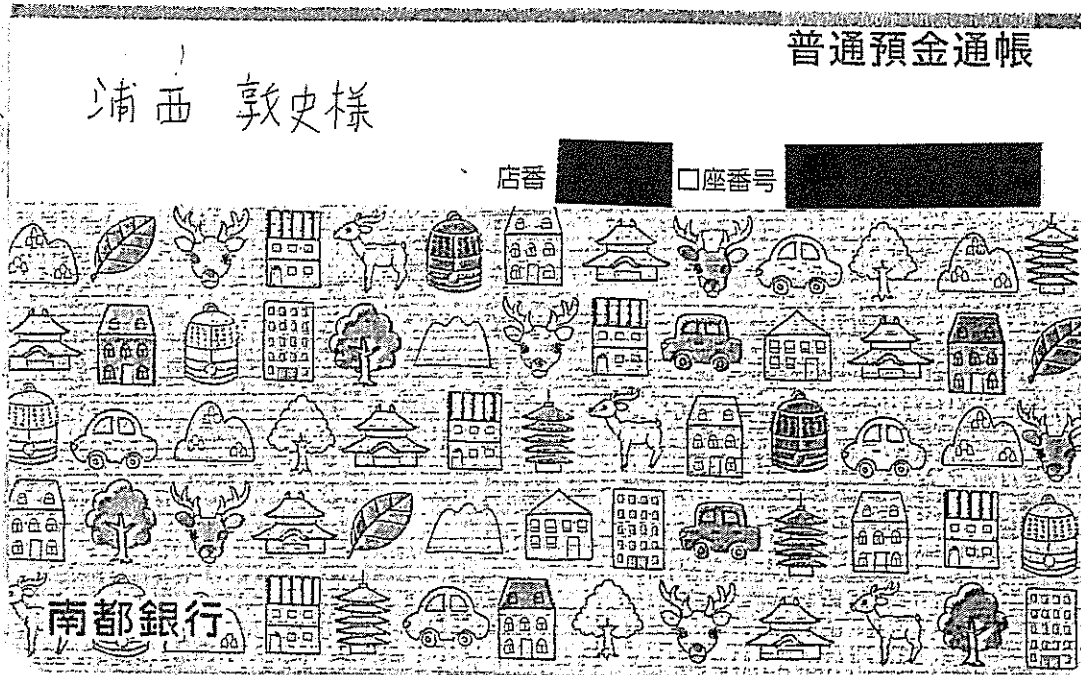 普通預金通帳
浦西 敦史様
店番 口座番号
南都銀行